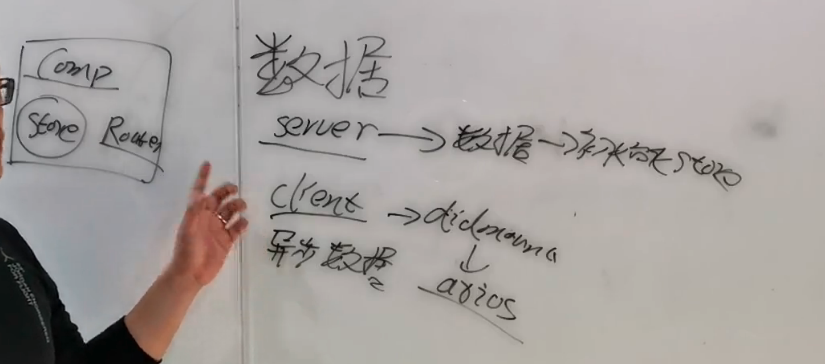 Comp
Store Router
数据
server → 数据 → 初始化 Store
client → didmount
异步数据 ↓
axios